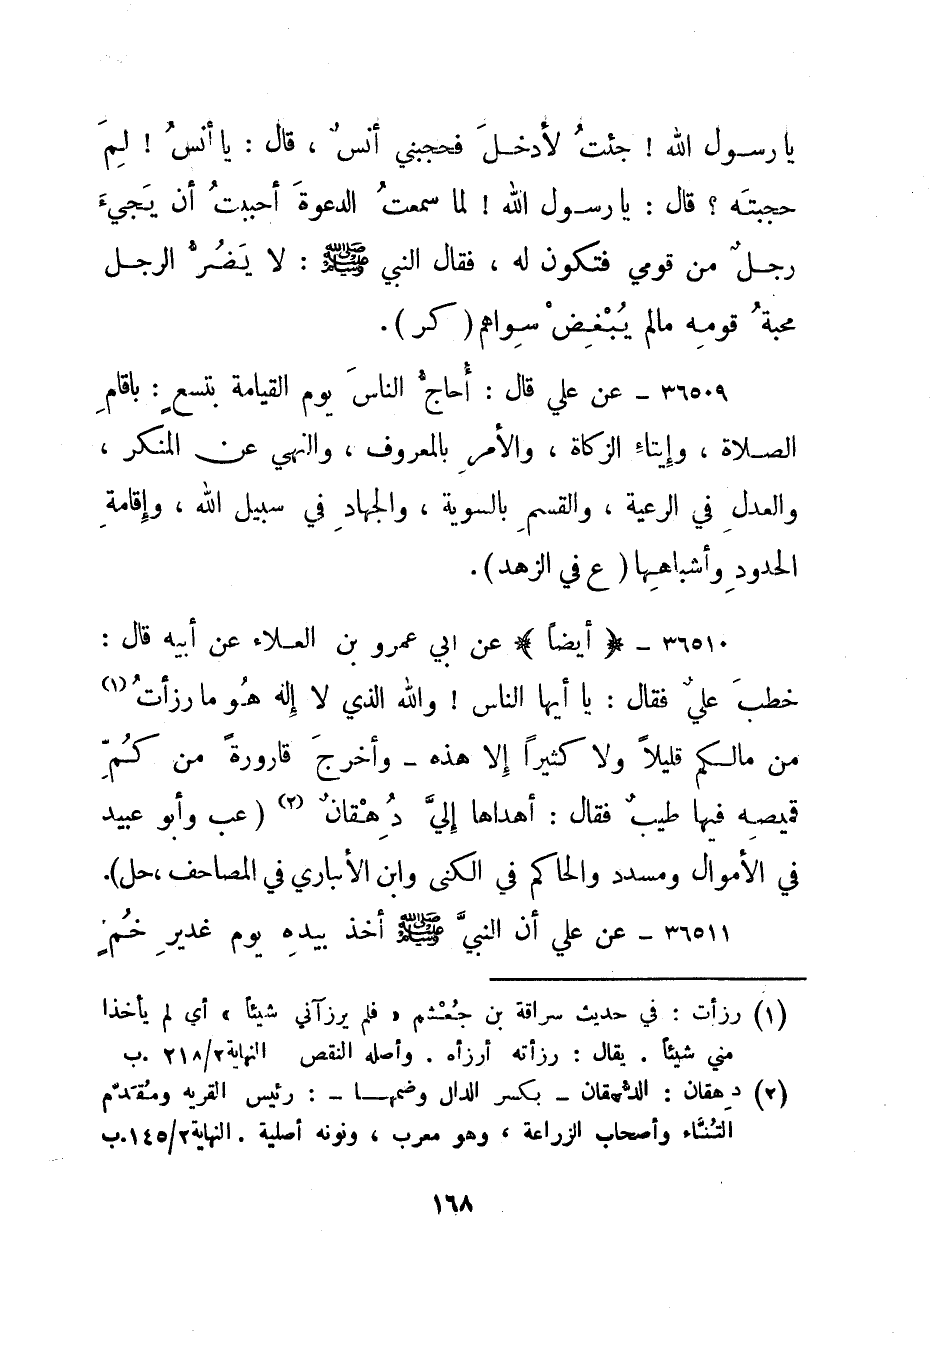 يا رسول الله ! جئتُ لأدخلَ فحجبني أنسٌ ، قال : يا أنسُ ! لِمَ
حجبتَه ؟ قال : يا رسول الله ! لما سمعتُ الدعوةَ أحببتُ أن يَجيءَ
رجلٌ من قومي فتكون له ، فقال النبي ﷺ : لا يَضُرُّ الرجل
محبةُ قومِه مالم يُبْغِضْ سِواهم ( كر ) .
٣٦٥٠٩ ـ عن علي قال : أُحاجُّ الناسَ يوم القيامة بتسعٍ : باقامِ
الصلاة ، وإيتاءِ الزكاة ، والأمرِ بالمعروف ، والنهي عن المنكر ،
والعدلِ في الرعية ، والقسمِ بالسوية ، والجهادِ في سبيل الله ، وإقامةِ
الحدودِ وأشباهِها ( ع في الزهد ) .
٣٦٥١٠ ـ ﴿ أيضاً ﴾ عن ابي عمرو بن العلاء عن أبيه قال :
خطبَ عليٌ فقال : يا أيها الناس ! والله الذي لا إله هُو ما رزأتُ (١)
من مالكم قليلاً ولا كثيراً إلا هذه ـ وأخرجَ قارورةً من كُمِّ
قميصِه فيها طيبٌ فقال : أهداها إليَّ دُِهْقانٌ (٢) ( عب وأبو عبيد
في الأموال ومسدد والحاكم في الكنى وابن الأنباري في المصاحف ، حل ) .
٣٦٥١١ ـ عن علي أن النبيَّ ﷺ أخذ بيدِه يوم غديرِ خُمٍّ
(١) رزأت : في حديث سراقة بن جُعْشم « فلم يرزآني شيئاً » أي لم يأخذا
مني شيئاً . يقال : رزأته أرزأه . وأصله النقص النهاية ٢١٨/٢ .ب
(٢) دهقان : الدهقان ـ بكسر الدال وضمها ـ : رئيس القريه ومُقَدَّم
التُنَّاء وأصحاب الزراعة ، وهو معرب ، ونونه أصلية . النهاية ١٤٥/٢ .ب
١٦٨